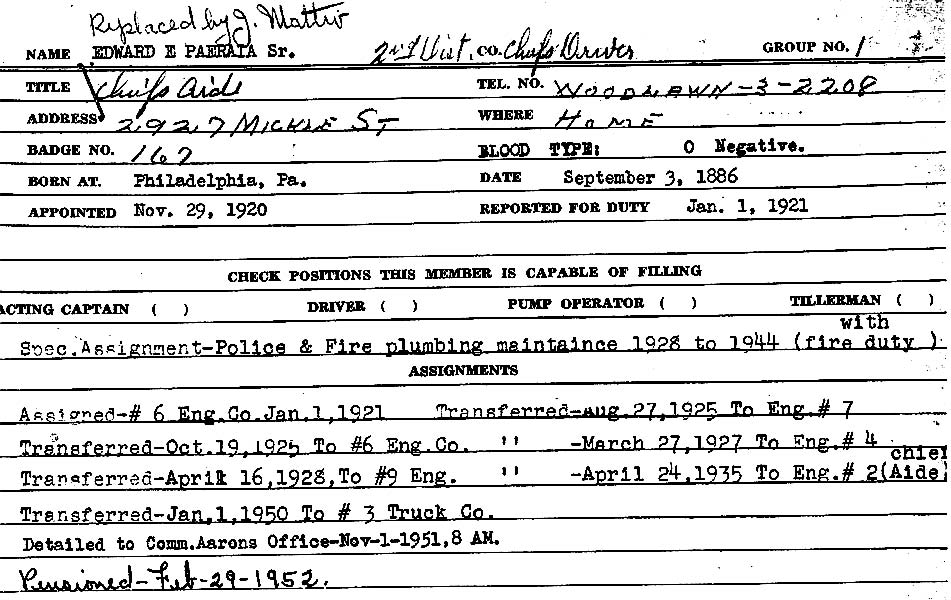 Replaced by J. Mattio
NAME EDWARD E PAERATA Sr. 2nd Dist. CO. Chiefs Driver GROUP NO. 1
TITLE Chiefs Aide TEL. NO. WOODLAWN-3-2208
ADDRESS 2927 MICKLE ST WHERE HOME
BADGE NO. 167 BLOOD TYPE: O Negative.
BORN AT. Philadelphia, Pa. DATE September 3, 1886
APPOINTED Nov. 29, 1920 REPORTED FOR DUTY Jan. 1, 1921
CHECK POSITIONS THIS MEMBER IS CAPABLE OF FILLING
ACTING CAPTAIN ( ) DRIVER ( ) PUMP OPERATOR ( ) TILLERMAN ( )
with
Spec.Assignment-Police & Fire plumbing maintaince 1928 to 1944 (fire duty )
ASSIGNMENTS
Assigned-# 6 Eng.Co.Jan.1,1921 Transferred-aug.27,1925 To Eng.# 7
Transferred-Oct.19,1925 To #6 Eng.Co. '' -March 27,1927 To Eng.# 4
chief
Transferred-April 16,1928,To #9 Eng. '' -April 24,1935 To Eng.# 2(Aide)
Transferred-Jan,1,1950 To # 3 Truck Co.
Detailed to Comm.Aarons Office-Nov-1-1951,8 AM.
Pensioned-Feb-29-1952.